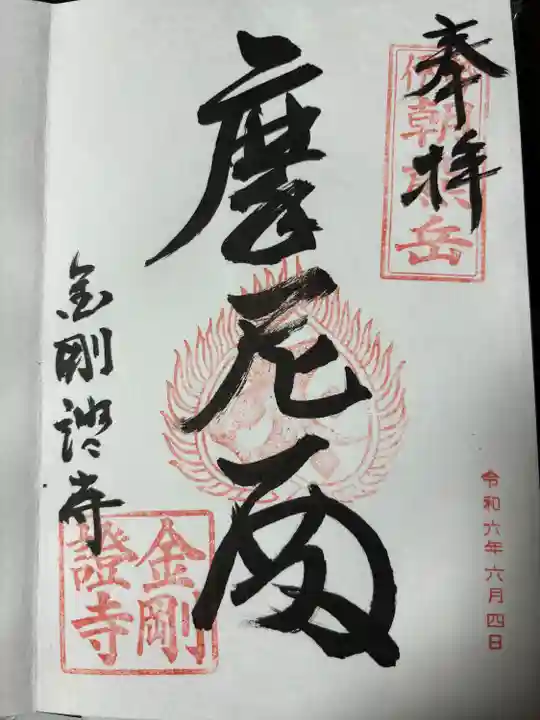 奉拝
伊勢朝熊岳
摩尼殿
金剛證寺
金剛
證寺
令和六年六月四日